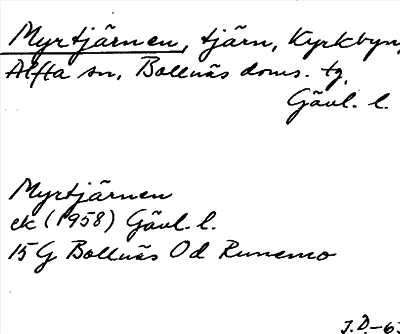 Myrtjärnen, tjärn, Kyrkbyn,
Alfta sn, Bollnäs doms. tg,
Gävl. l.
Myrtjärnen
ek (1958) Gävl. l.
15 G Bollnäs Od Runemo
J.D.-63